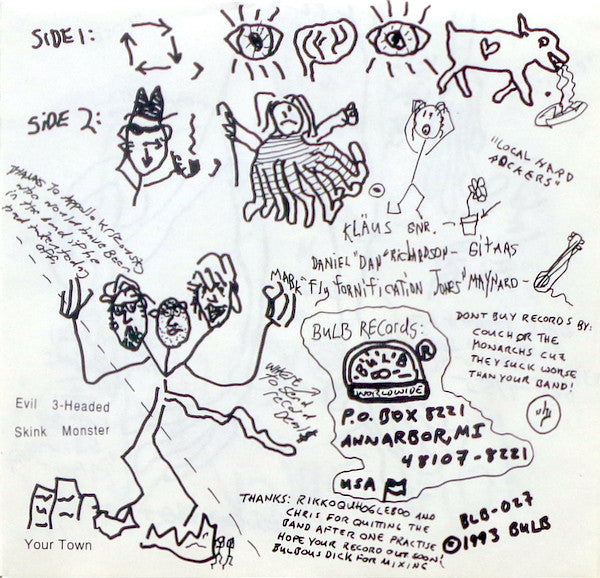 SIDE 1:
SIDE 2:
"LOCAL HARD
ROCKERS"
THANKS TO
WHO WOULD HAVE BEEN
IN THE BAND
OFF
KLÄUS SNR. -
DANIEL "DAN" RICHARDSON - GITAAS
MARK "FLY FORNIFICATION JONES" MAYNARD -
BULB RECORDS:
BULB
®
WORLDWIDE
P.O. BOX 8221
ANN ARBOR, MI
48107-8221
USA
DONT BUY RECORDS BY:
COUCH OR THE
MONARCHS CUZ
THEY SUCK WORSE
THAN YOUR BAND!
WHERE
TO SEND
YOUR
Evil 3-Headed
Skink Monster
Your Town
THANKS: RIKKOQUHOGLEBOO AND
CHRIS FOR QUITTING THE
BAND AFTER ONE PRACTISE
HOPE YOUR RECORD OUT SOON!
BULBOUS DICK FOR MIXING
BLB-027
©1993 BULB